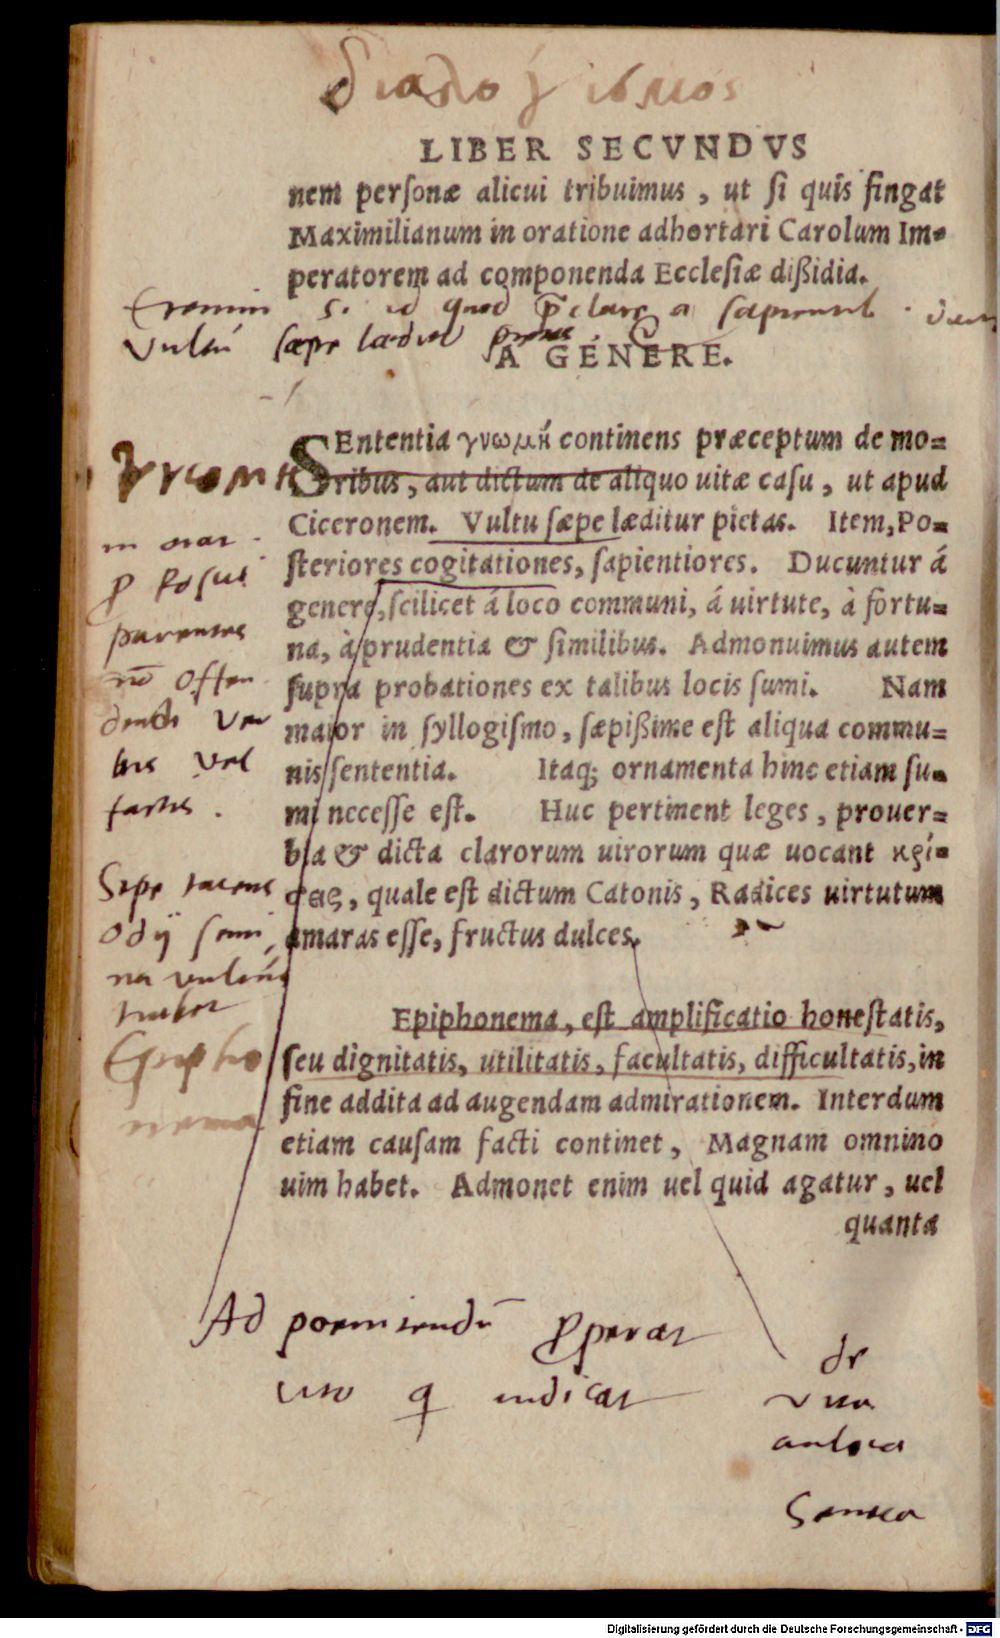 διαλογισμός
LIBER SECVNDVS
nem perſonæ alicui tribuimus, ut ſi quis fingat
Maximilianum in oratione adhortari Carolum Im-
peratorem ad componenda Eccleſiæ dißidia.
Si id quod a
Vultu sæpe læditur
A GENERE.
SEntentia γνωμή continens præceptum de mo-
γνωμη
ribus, aut dictum de aliquo uitæ caſu, ut apud
Ciceronem. Vultu ſæpe læditur pietas. Item, Po-
in orat.
ſteriores cogitationes, ſapientiores. Ducuntur á
genere, ſcilicet á loco communi, á uirtute, à fortu-
na, à prudentia & ſimilibus. Admonuimus autem
nō offen
ſupra probationes ex talibus locis ſumi. Nam
maior in ſyllogiſmo, ſæpißime eſt aliqua commu-
nis ſententia. Itaq; ornamenta hinc etiam ſu-
bis vel
mi neceſſe eſt. Huc pertinent leges, prouer-
factis.
bia & dicta clarorum uirorum quæ uocant κρί-
σεις, quale eſt dictum Catonis, Radices uirtutum
Sepe tacens
amaras eſſe, fructus dulces.
odij semi
na vultus
habet
Epiphonema, eſt amplificatio honeſtatis,
Epipho
ſeu dignitatis, utilitatis, facultatis, difficultatis, in
fine addita ad augendam admirationem. Interdum
nema
etiam cauſam facti continet, Magnam omnino
uim habet. Admonet enim uel quid agatur, uel
quanta
Ad poenitendū properat
cito q iudicat
de
vita
Seneca
Digitalisierung gefördert durch die Deutsche Forschungsgemeinschaft - DFG